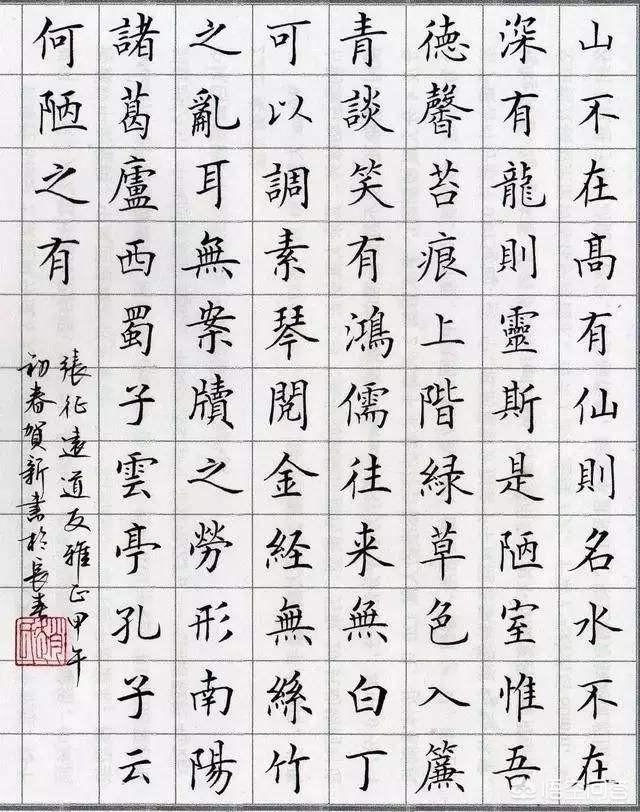 山不在高有仙則名水不在
深有龍則靈斯是陋室惟吾
德馨苔痕上階緑草色入簾
青談笑有鴻儒往来無白丁
可以調素琴閱金経無絲竹
之亂耳無案牘之勞形南陽
諸葛廬西蜀子雲亭孔子云
何陋之有
張征遠道友雅正甲午
初春賀新書於長春
悟空问答